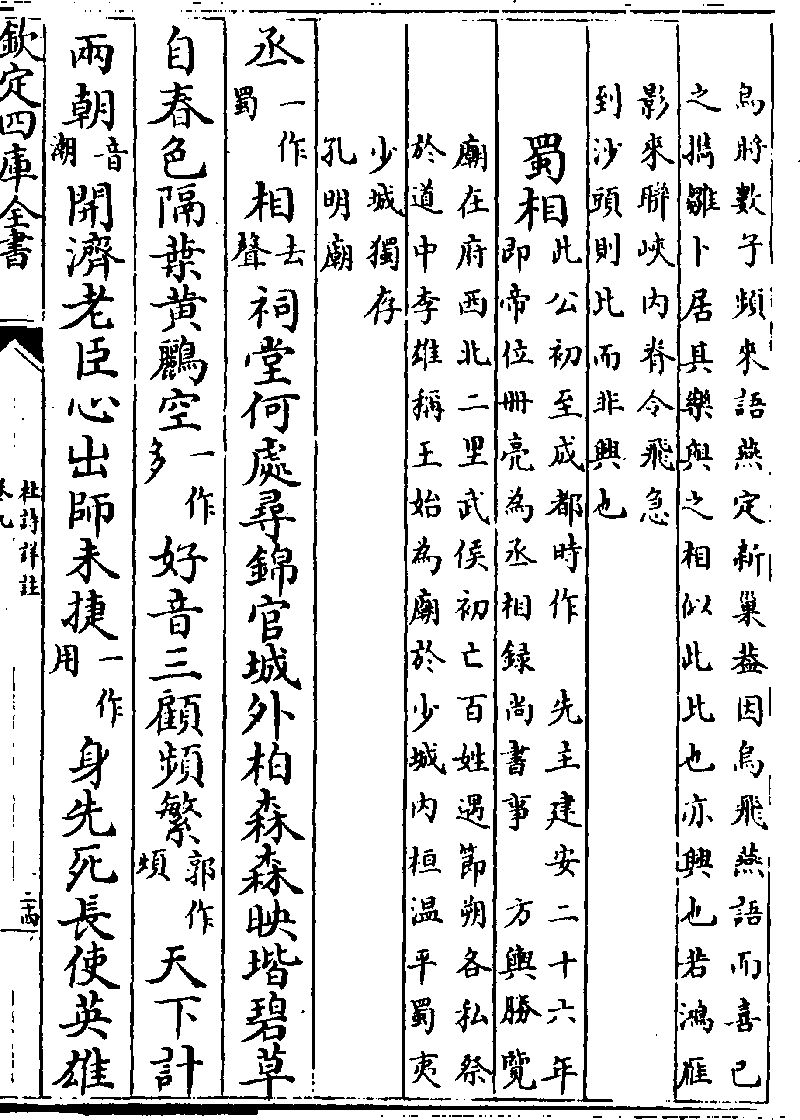 烏將數子頻來語燕定新巢葢因烏飛燕語而喜己
之擕雛卜居其樂與之相似此比也亦興也若鴻雁
影來聯峽内脊令飛急
到沙頭則比而非興也
蜀相
此公初至成都時作　先主建安二十六年
即帝位冊亮為丞相録尚書事　方輿勝覽
廟在府西北二里武侯初亡百姓遇節朔各私祭
於道中李雄稱王始為廟於少城内桓温平蜀夷
少城獨存
孔明廟
丞一作蜀相去聲祠堂何處尋錦官城外柏森森映堦碧草
自春色隔葉黄鸝空一作多好音三顧頻繁郭作煩天下計
兩朝音潮開濟老臣心出師未捷一作用身先死長使英雄
欽定四庫全書
杜詩詳註
卷九
二十四